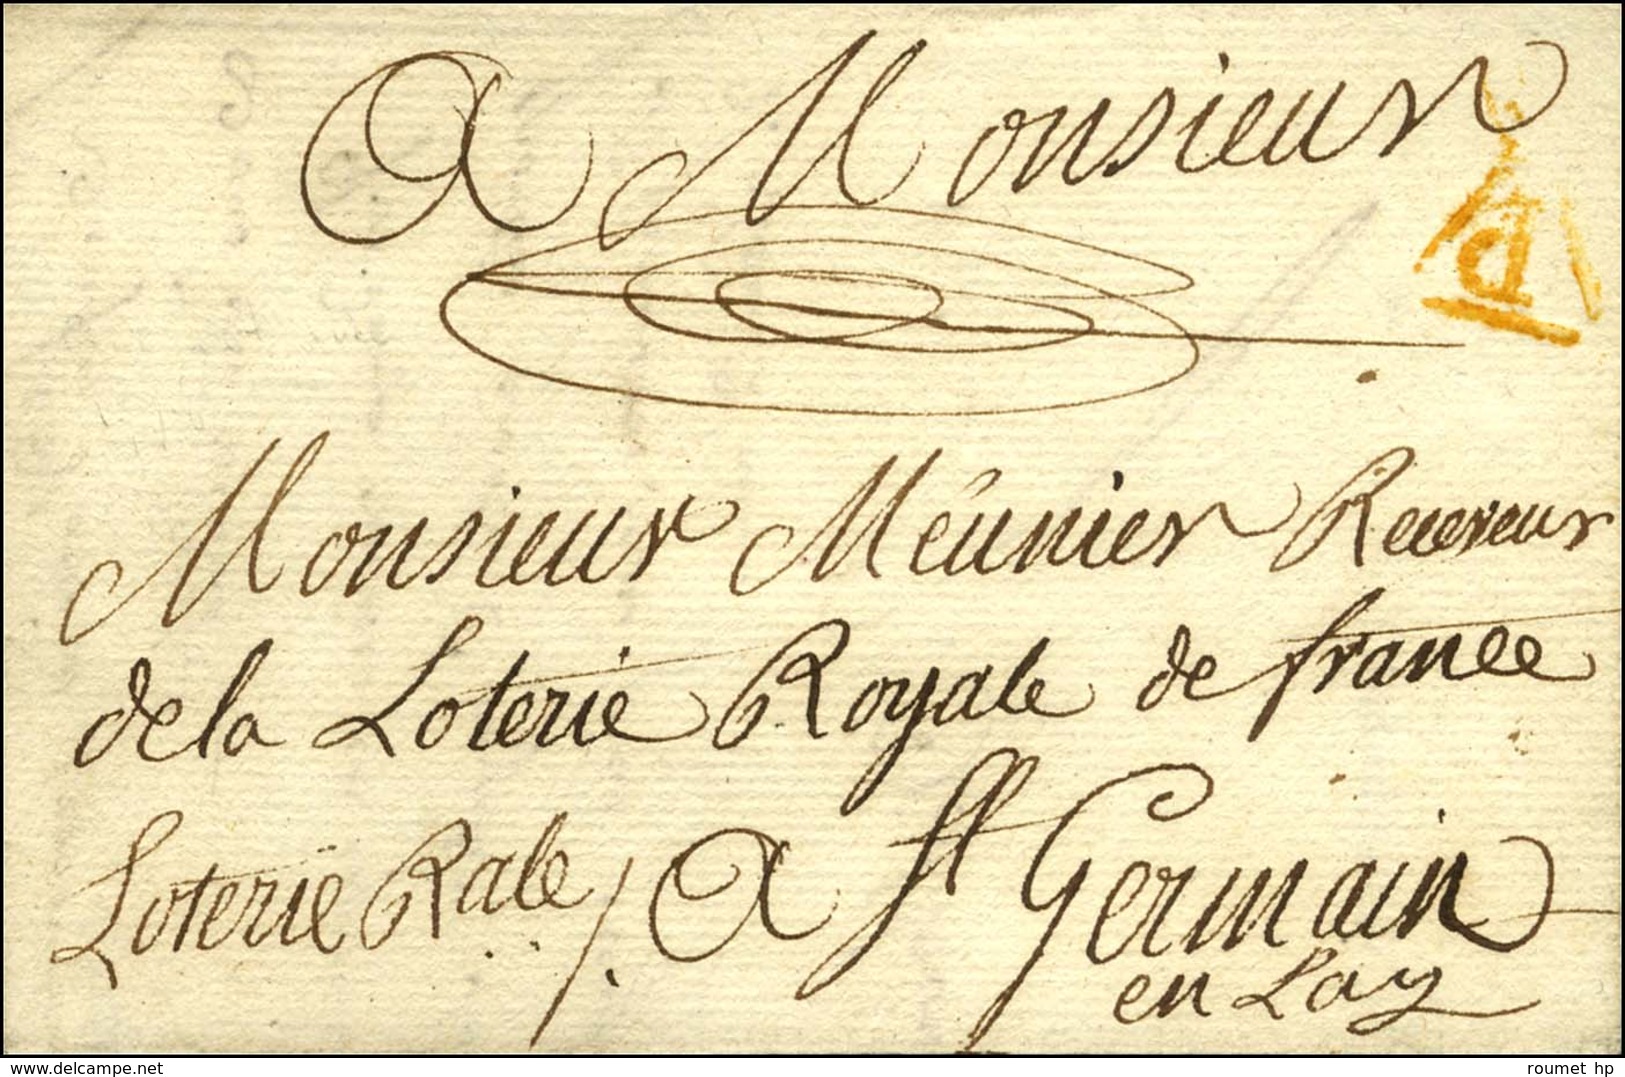 A Monsieur
D
Monsieur Méunier Receveur
de la Loterie Royale de france
Loterie Rale / A St Germain
en Lay
delcampe.net
roumet hp